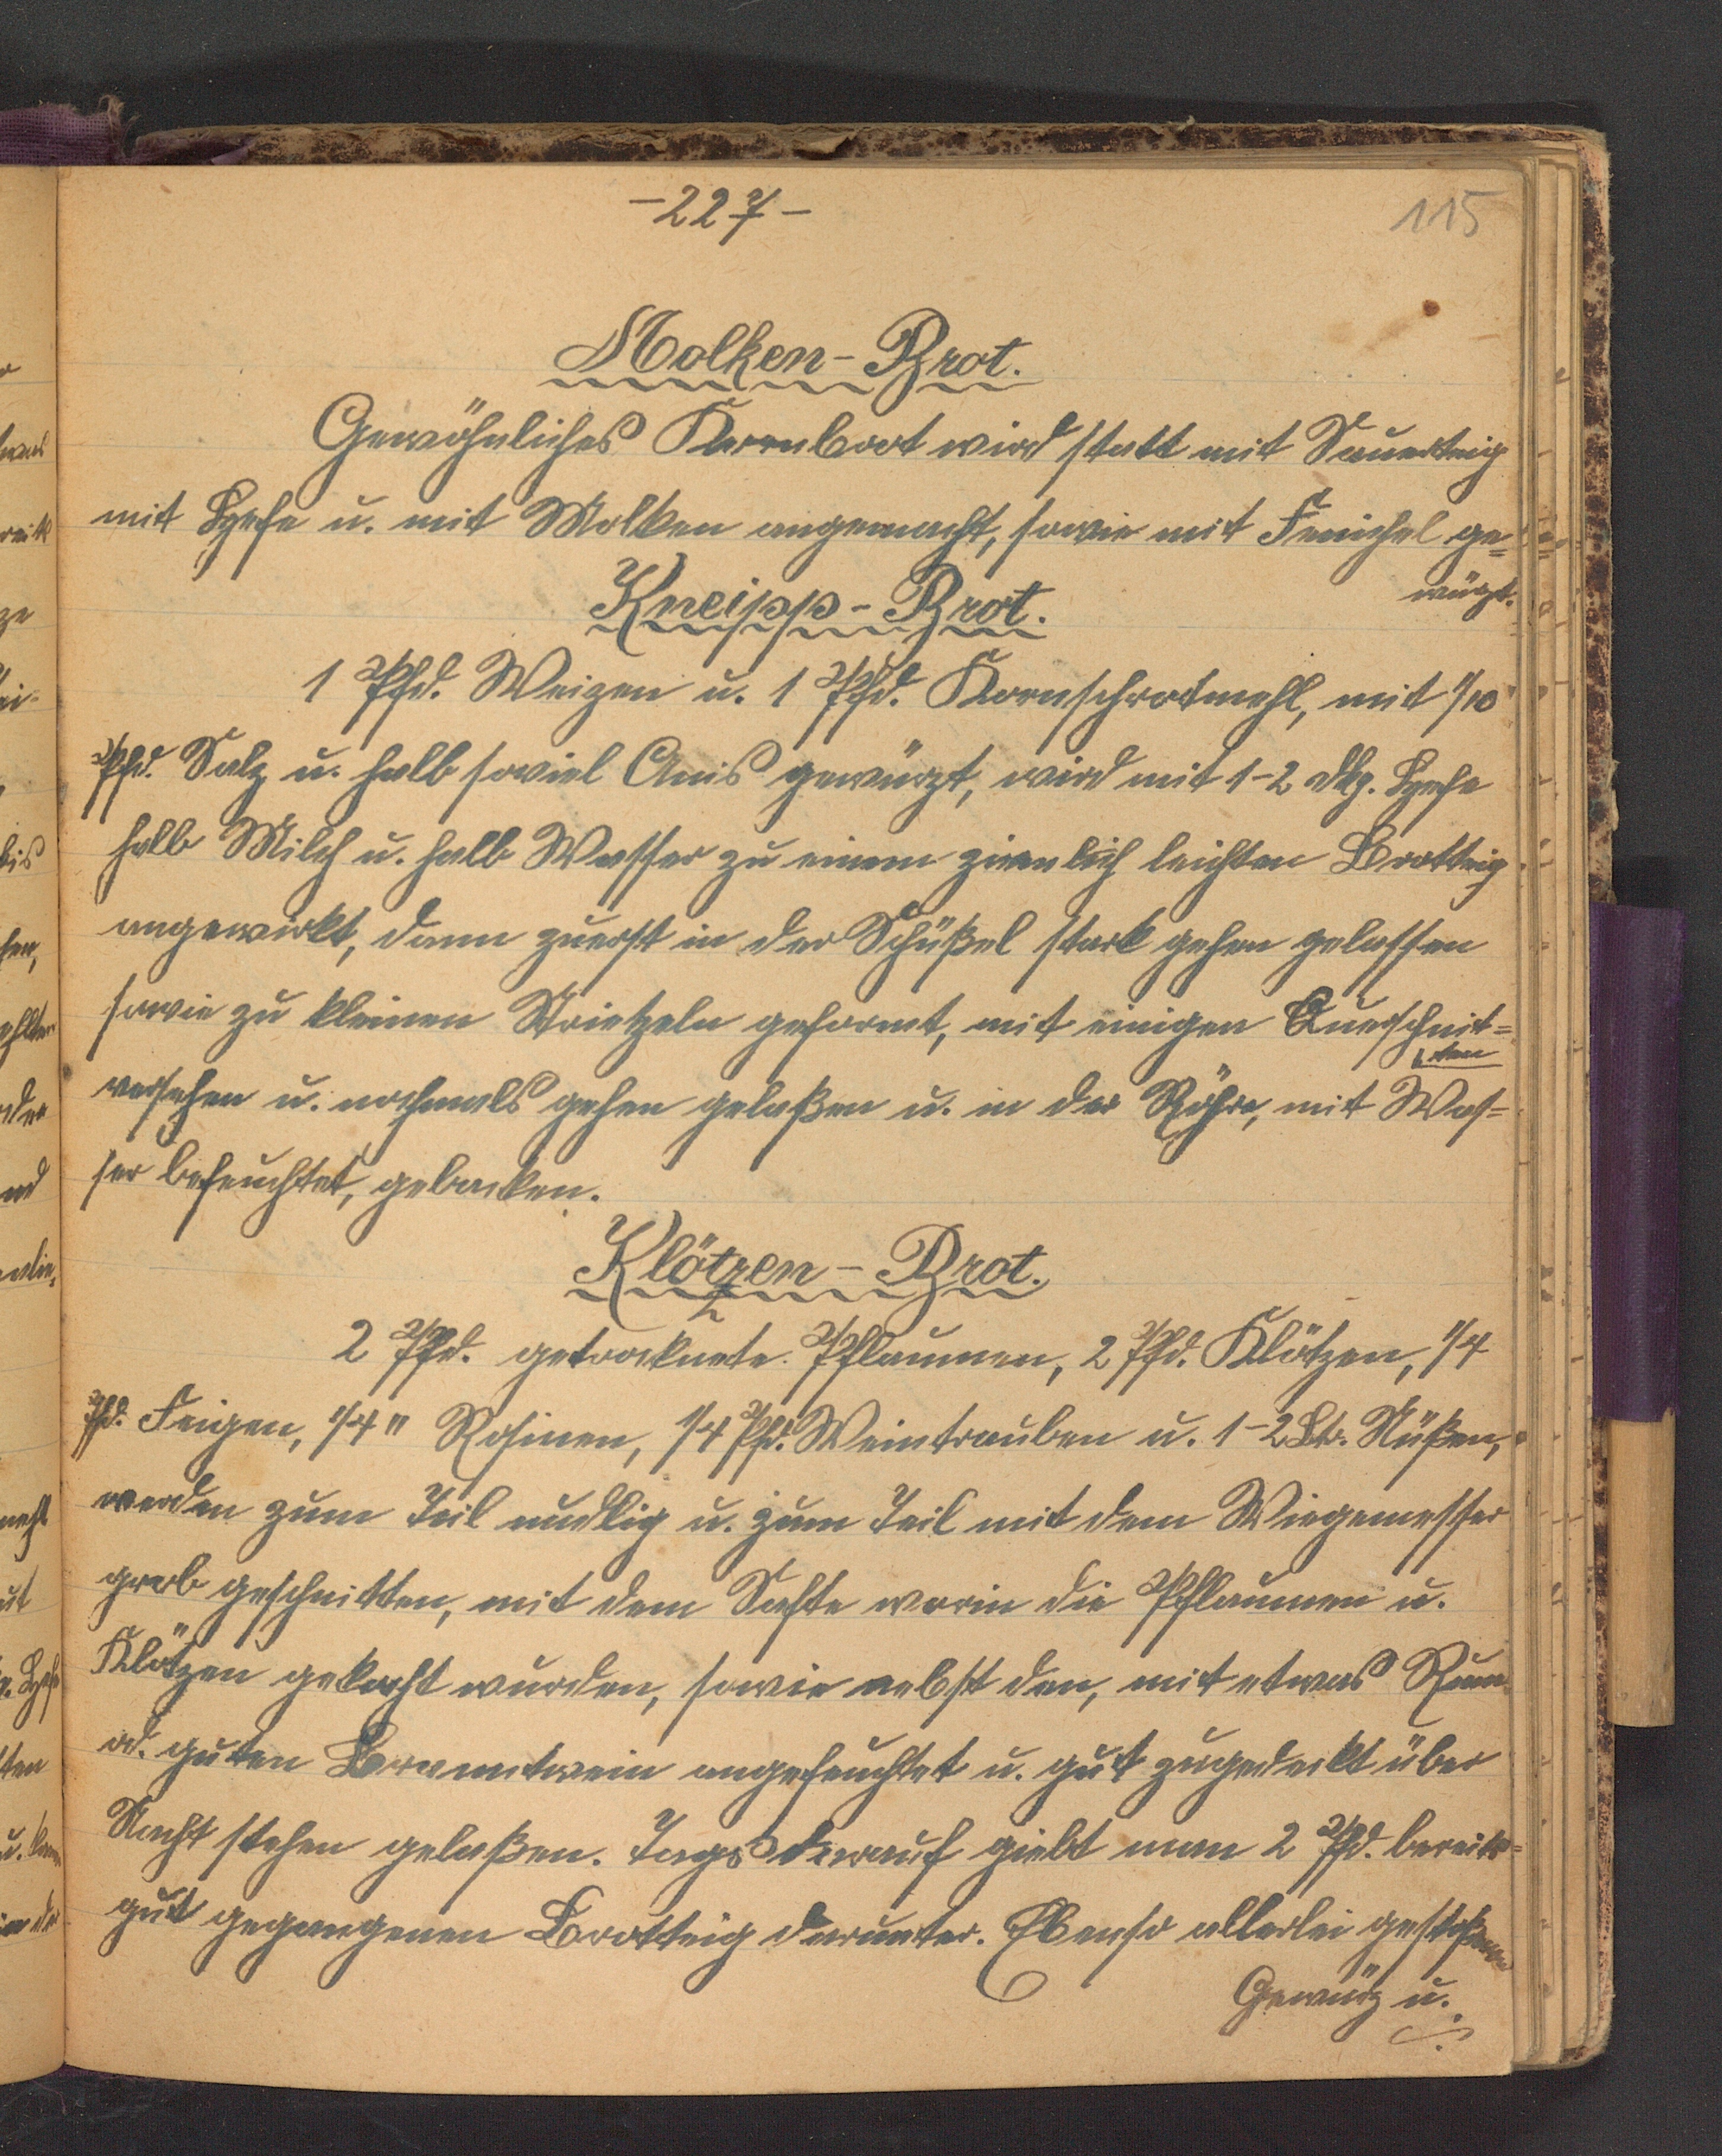 -227-
115
Molken-Brot.
Gewöhnliches Kornbrot wird statt mit Sauerteig
mit Hefe u. mit Molken angemacht, sowie mit Fenichel ge=
würzt.
Kneipp-Brot.
1 Pfd. Weizen u. 1 Pfd. Kornschrotmehl, mit 1/10
Pfd. Salz u. halb soviel Anis gewürzt, wird mit 1-2 dkg. Hefe
halb Milch u. halb Wasser zu einem ziemlich leichten Brotteig
angewirkt, dann zuerst in der Schüßel stark gehen gelassen
sowie zu kleinen Strietzeln geformt, mit einigen Querschnit=
ten
versehen u. nochmals gehen gelaßen u. in der Röhre, mit Was=
ser befeuchtet, gebacken.
Klötzen-Brot.
2 Pfd. getrocknete Pflaumen, 2 Pfd. Klötzen, 1/4
Pfd. Feigen, 1/4 " Rosinen, 1/4 Pfd. Weintrauben u. 1-2 Ltr. Nüßen,
werden zum Teil nudlig u. zum Teil mit dem Wiegemesser
grob geschnitten, mit dem Safte worin die Pflaumen u.
Klötzen gekocht wurden, sowie nebst den, mit etwas Rum
od. guten Branntwein angefeuchtet u. gut zugedeckt über
Nacht stehen gelaßen. Tags darauf giebt man 2 Pfd. bereits
gut gegangenen Brotteig darunter. Ebenso allerlei gestoßene
Gewürz u.